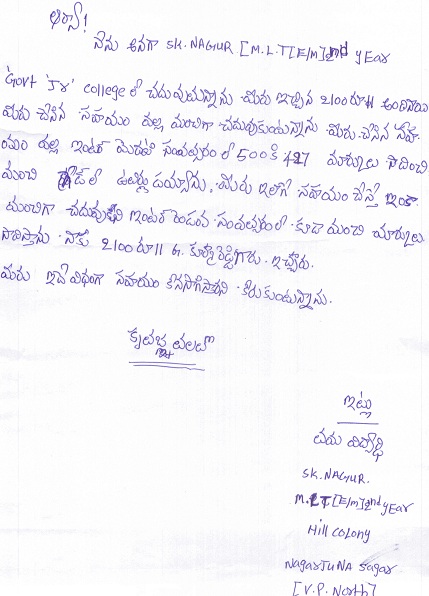 ఆర్యా!
నేను అనగా SK.NAGUR.[M.L.T[E/M]2nd yEar
'Govt 'Jr' college లో చదువుచున్నాను మీరు ఇచ్చిన 2100రూ॥ అందినాయి
మీరు చేసిన సహాయం వల్ల మంచిగా చదువుకుంటున్నాను మీరు చేసిన సహా
యం వల్ల ఇంటర్ మొదటి సంవత్సరం లో 500కి 427 మార్కులు సాధించి
మంచి గ్రేడ్‌లో ఉత్తీర్ణుడయ్యాను. మీరు ఇలాగే సహాయం చేస్తే ఇంకా
మంచిగా చదువుకుని ఇంటర్ రెండవ సంవత్సరంలో కూడా మంచి మార్కులు
సాధిస్తాను. నాకు 2100రూ॥ G. రెడ్డిగారు. ఇచ్చారు.
మీరు ఇదేవిధంగా సహాయం కొనసాగిస్తారని కోరుకుంటున్నాను.
కృతజ్ఞతలతో
ఇట్లు
మీ విద్యార్థి
SK.NAGUR.
M.L.T.[E/M]2nd yEar
Hill colony
NagarJUNA sagar
[V.P. North]